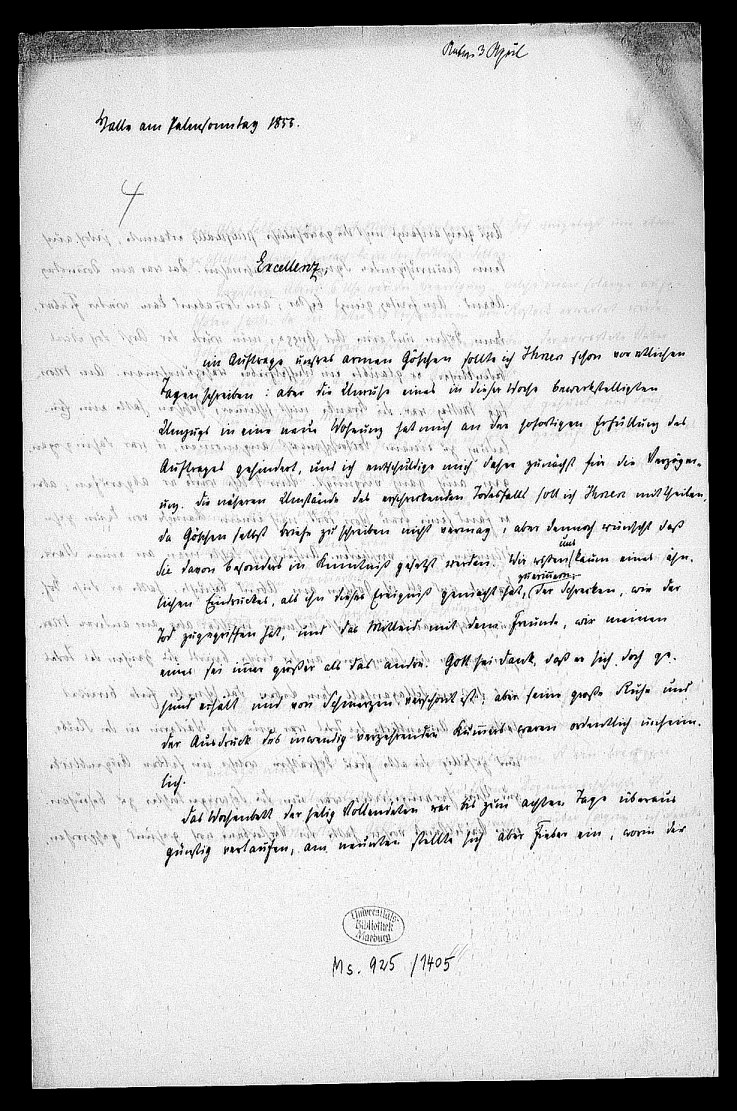 3 April
Halle am Palmsonntag 1855.
4
Excellenz,
im Auftrage unsres armen Göschen sollte ich Ihnen schon vor etlichen
Tagen schreiben: aber die Unruhe eines in dieser Woche bewerkstelligten
Umzugs in eine neue Wohnung hat mich an der sofortigen Erfüllung des
Auftrages gehindert, und ich entschuldige mich daher zunächst für die Verzöger-
ung. Die näheren Umstände des erschreckenden Todesfalls soll ich Ihnen mittheilen,
da Göschen selbst Briefe zu schreiben nicht vermag, aber dennoch wünscht daß
Sie davon besonders in Kenntniß gesetzt werden. Wir wissen uns kaum eines ähn-
lichen Eindruckes, als ihn dieses Ereigniß gemacht hat, zu erinnern. Der Schrecken, wie der
Tod zugegriffen hat, und das Mitleid mit dem Freunde, wir meinen
eines sei immer größer als das andre. Gott sei Dank, daß er sich doch ge-
sund erhält und von Schmerzen verschont ist; aber seine große Ruhe und
der Ausdruck des inwendig verzehrenden Kummers waren ordentlich unheim-
lich.
Das Wochenbett der selig Vollendeten war bis zum achten Tage überaus
günstig verlaufen, am neunten stellte sich aber Fieber ein, worin der
Universitäts-
Bibliothek
Marburg
Ms. 925/1405